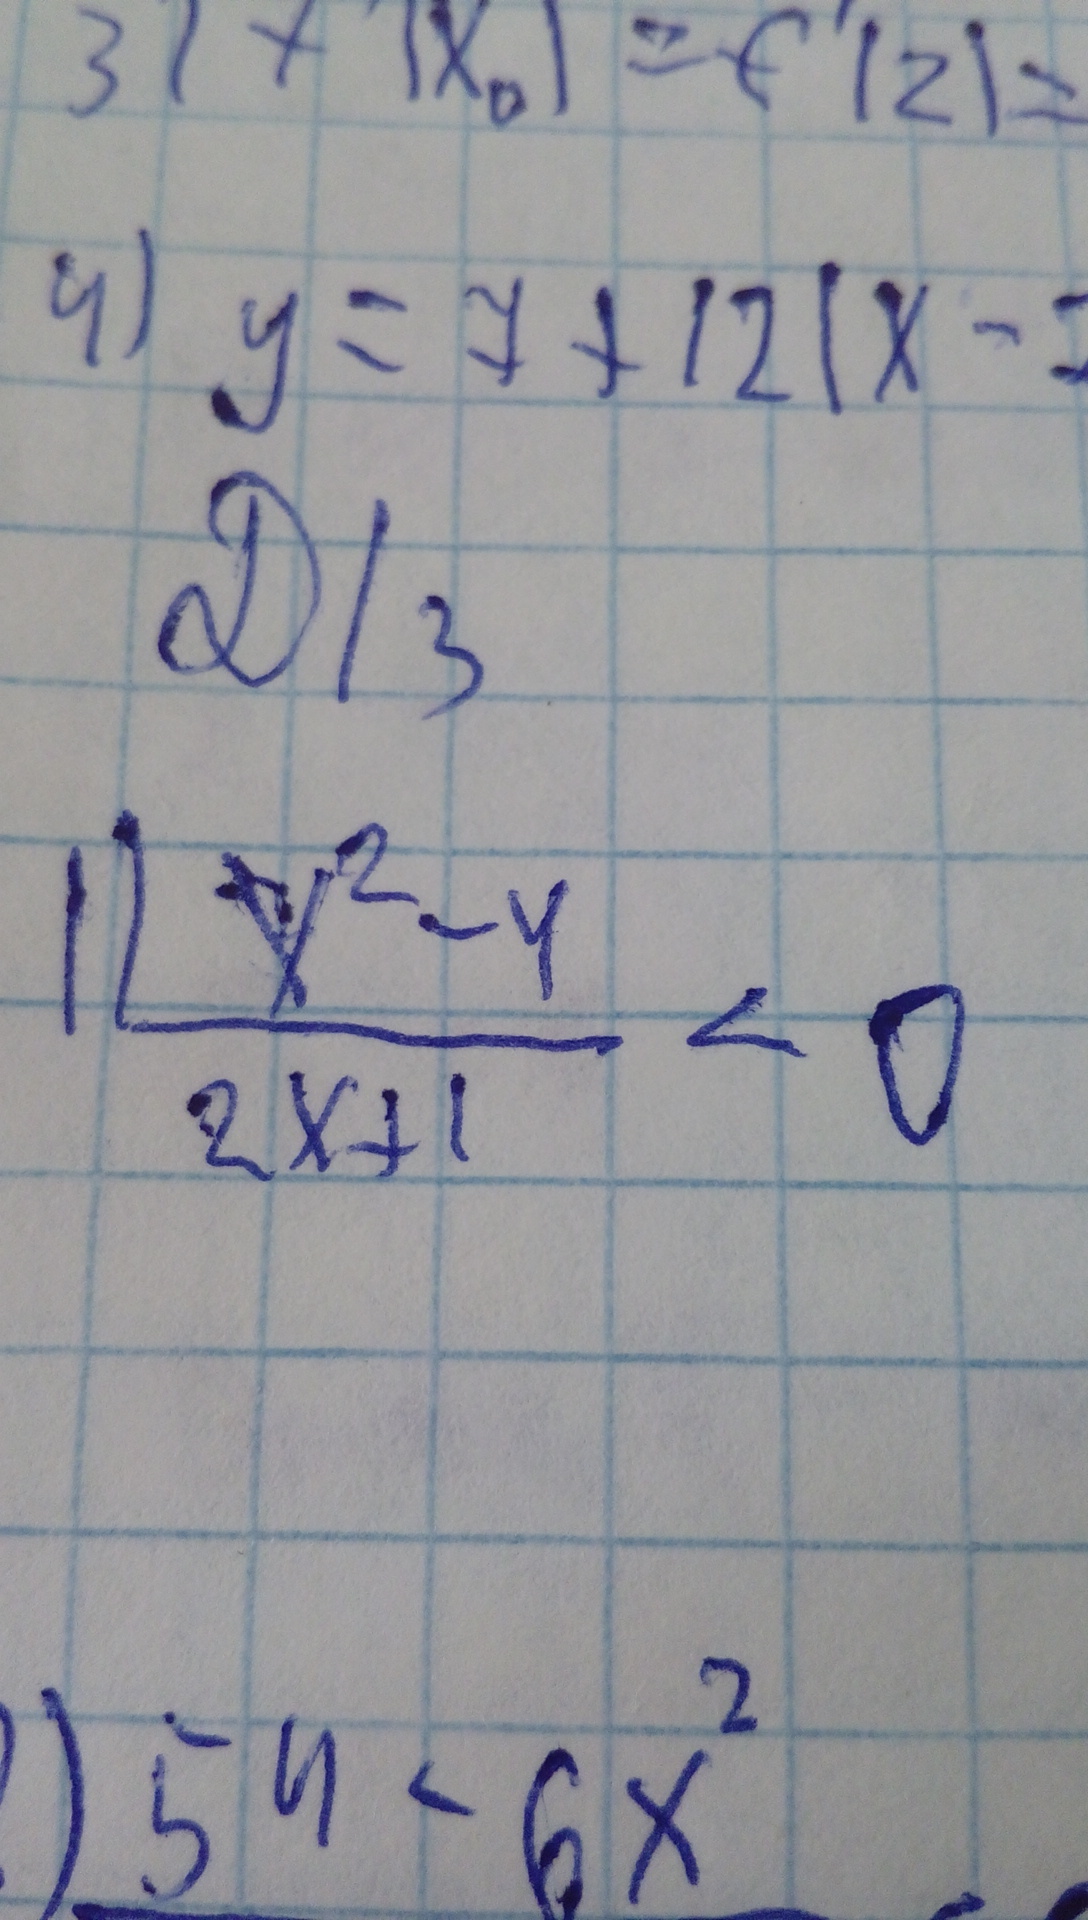 3) f'(x₀) = f'(2) =
4) y = 7 + 12(x -
D/з
1) x² - 4
2x+1
< 0
) 54 - 6x²